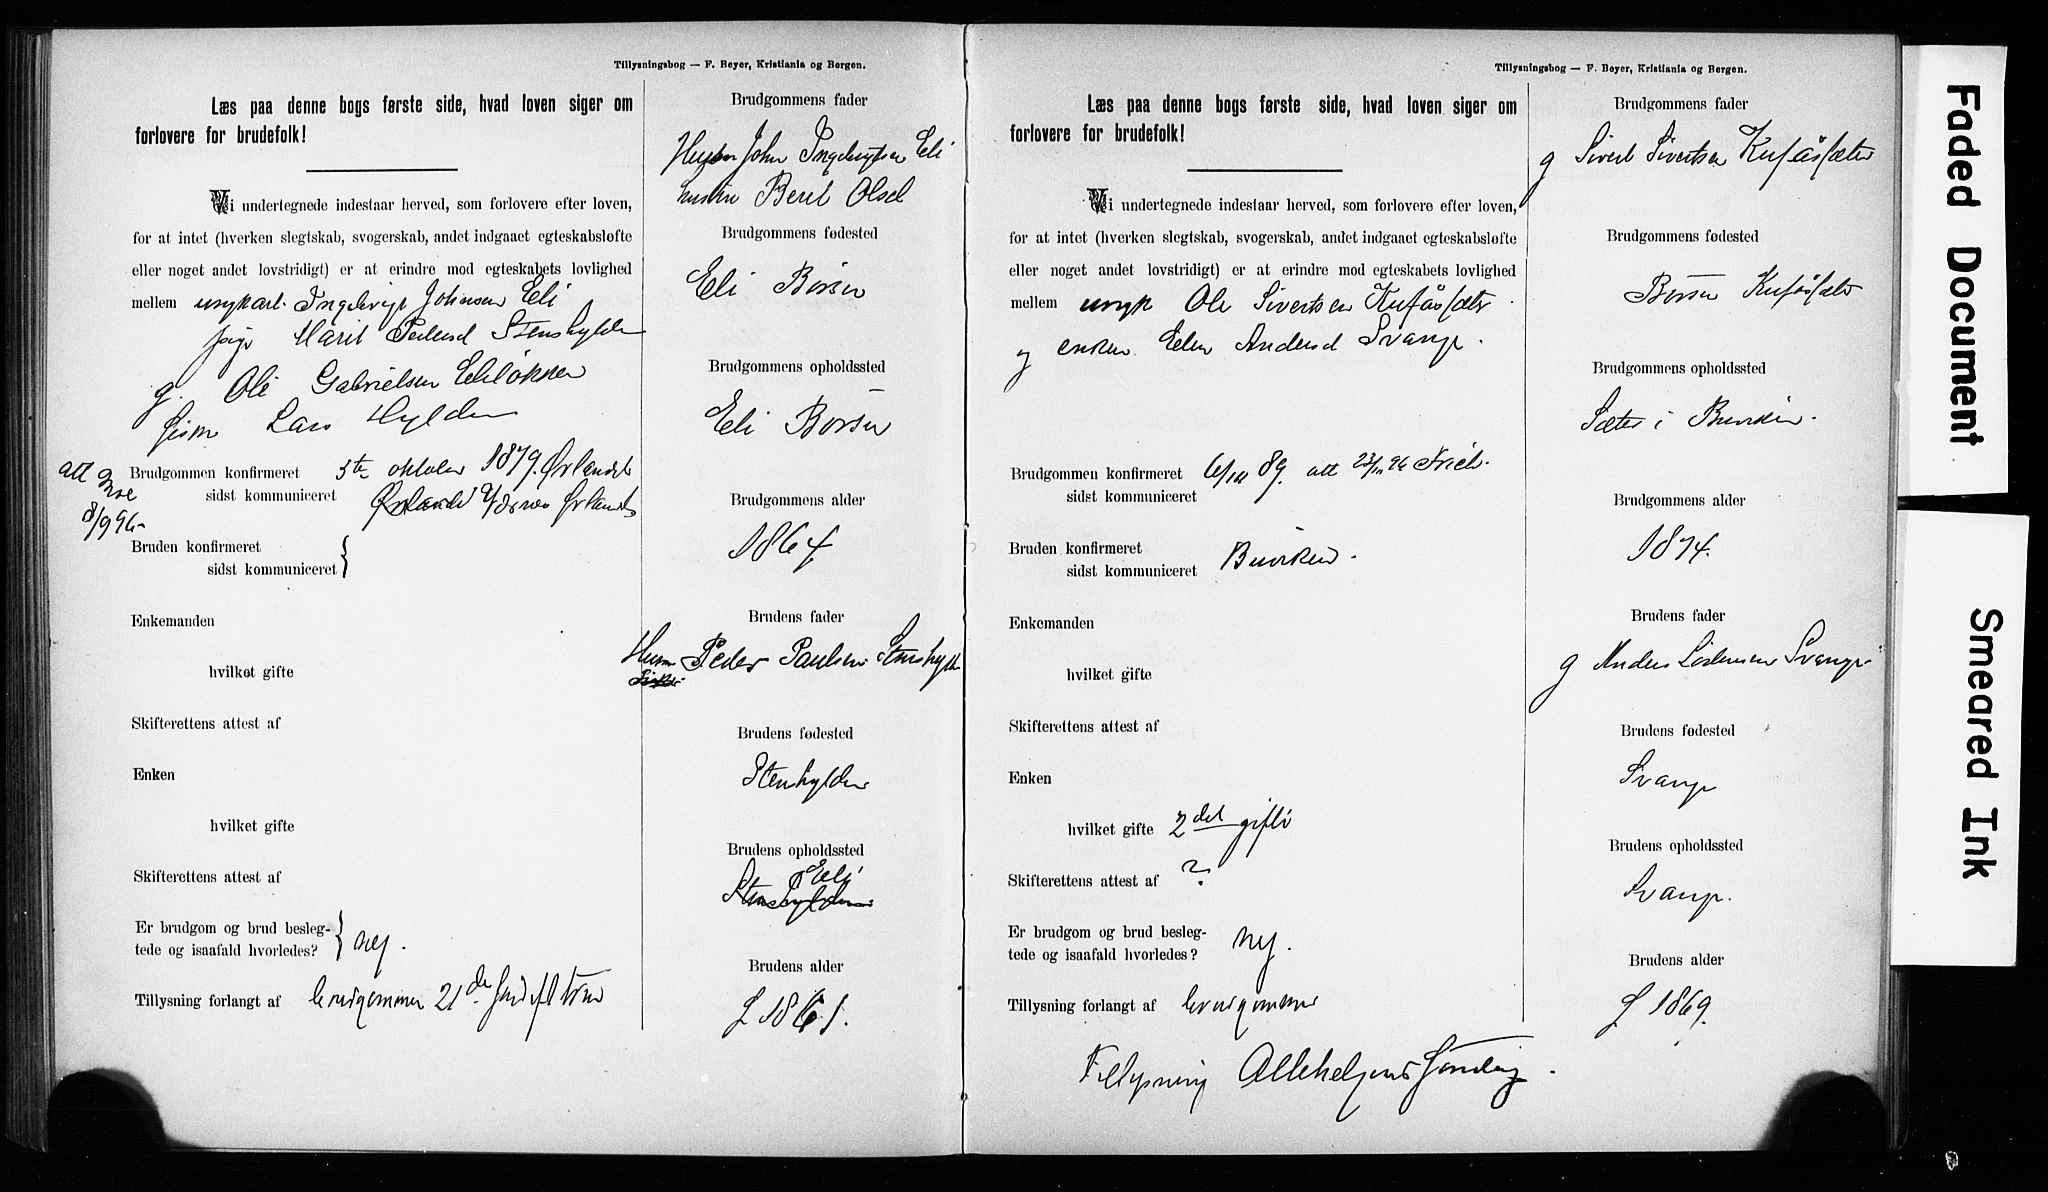 Tillysningsbog — F. Beyer, Kristiania og Bergen.
Læs paa denne bogs første side, hvad loven siger om
forlovere for brudefolk!
Vi undertegnede indestaar herved, som forlovere efter loven,
for at intet (hverken slegtskab, svogerskab, andet indgaaet egteskabsløfte
eller noget andet lovstridigt) er at erindre mod egteskabets lovlighed
mellem ungkarl. Ingebrigt Johnsen Eli
pige Marit Pedersd Stenshylden
g. Ole Gabrielsen Eliløkken
Lars Hylden
att
8/9 96-
Brudgommen konfirmeret 5te oktober 1879. Ørlandet
sidst kommuniceret Ørlandet
Bruden konfirmeret
sidst kommuniceret }
Enkemanden
hvilket gifte
Skifterettens attest af
Enken
hvilket gifte
Skifterettens attest af
Er brudgom og brud besleg-
tede og isaafald hvorledes? } nej.
Tillysning forlangt af brudgommen 21de
Brudgommens fader
John Ingebrigtsen Eli
hustru Berit Olsd
Brudgommens fødested
Eli Børsen
Brudgommens opholdssted
Eli Børsen
Brudgommens alder
1864
Brudens fader
Husm Peder Paulsen Stenshylden
Brudens fødested
Stenshylden
Brudens opholdssted
Eli
Stenshylden
Brudens alder
f. 1861.
Tillysningsbog — F. Beyer, Kristiania og Bergen.
Læs paa denne bogs første side, hvad loven siger om
forlovere for brudefolk!
Vi undertegnede indestaar herved, som forlovere efter loven,
for at intet (hverken slegtskab, svogerskab, andet indgaaet egteskabsløfte
eller noget andet lovstridigt) er at erindre mod egteskabets lovlighed
mellem ungk Ole Sivertsen Kufåssæter
og enken Elen Andersd Svange.
Brudgommen konfirmeret 6/10 89. att 23/10 96
sidst kommuniceret
Bruden konfirmeret
sidst kommuniceret Buviken.
Enkemanden
hvilket gifte
Skifterettens attest af
Enken
hvilket gifte 2det gifte
Skifterettens attest af ?
Er brudgom og brud besleg-
tede og isaafald hvorledes? nej.
Tillysning forlangt af brudgommen
Tillysning Allehelgens søndag.
Brudgommens fader
g Sivert Sivertsen Kufåssæter
Brudgommens fødested
Børsen Kufåssæter
Brudgommens opholdssted
Sæter i Buviken.
Brudgommens alder
1874.
Brudens fader
g Anders Svange
Brudens fødested
Svange
Brudens opholdssted
Svange.
Brudens alder
f. 1869.
Faded Document
Smeared Ink